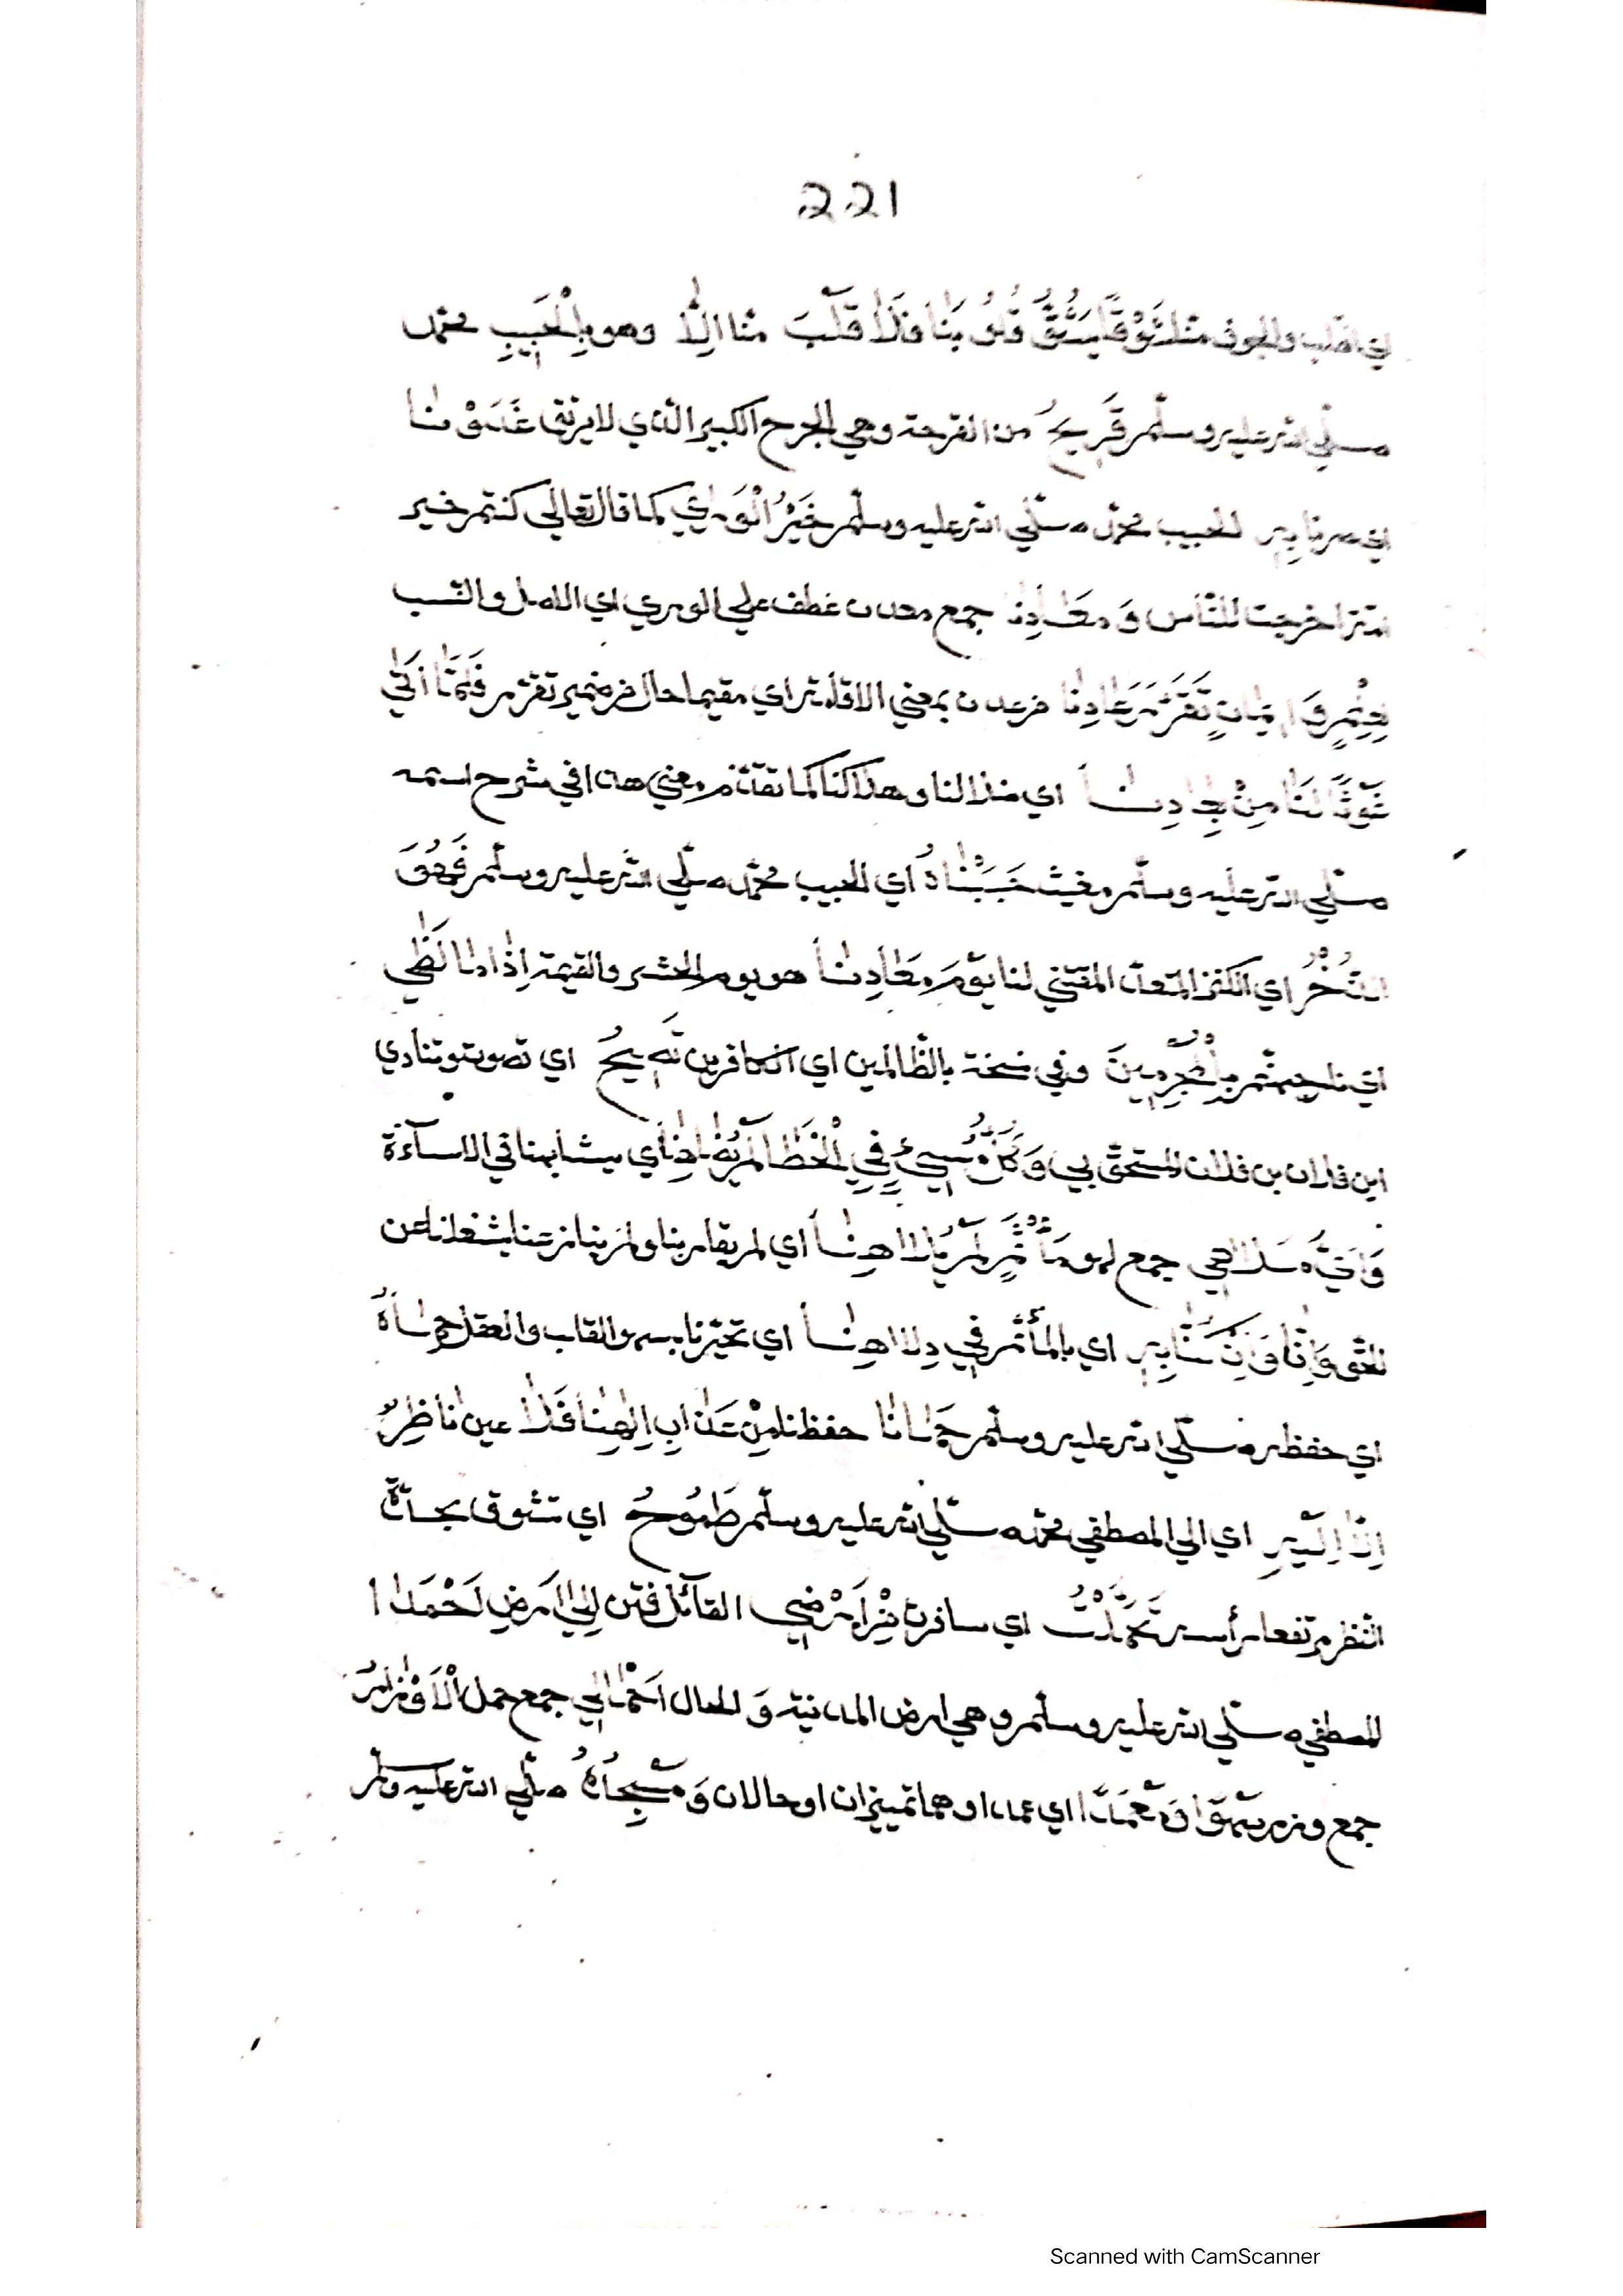 221
القلب والجوف مثل شَوْقًا يَشُقُّ قُلُوبَنَا فَلَا قَلْبَ منا اِلَّا وهو بِالْحَبِيبِ محمّد
صلّي الله عليه وسلّم قَرِيحُ من القرحة وهي الجرح الكبير الذي لا يرتقي غَدَوْنَا
اي صرنا بِهِ الحبيب محمّد صلّي الله عليه وسلّم خَيْرُ الْوَرٰي كما قال تعالي كنتم خير
امّة اخرجت للنّاس وَ مَعَادِنًا جمع معدن عطف علي الوري اي الاصل والنسب
تَقَرَّمَ عَادِنًا من عدن بمعني الاقامة اي مقيما حال من ضمير تقرّم فَلَمَّا اَتٰي
غَوْثًا لَنَا مِنْ اي لنا وهذا كما تقدّم ومعني هذا في شرح اسمه
صلّي الله عليه وسلّم وغيث حَبِيبُنَا اي الحبيب محمّد صلّي الله عليه وسلّم فَهُوَ
الذُّخْرُ اي الكنز المعدّ المقتني لنا يَوْمَ مَعَادِنَا هو يوم الحشر والقيمة اِذَا مَا لَظٰي
اي نار جهنّم بِالْمُجْرِمِينَ وفي نسخة بالظّالمين اي الكافرين تَصِيحُ اي تصوت وتنادي
اين فلان بن فلان المستحق بي وَكُلُّ مُسِيءٍ فِي الْخَطَا لَمْ يُضَاهِنَا اي يشابهنا في الاساءة
وَاَيُّ مَلَاهِي جمع لهو مَأْثَمٍ لَمْ يُلَاهِنَا اي لم يقاربنا ولم ينازعنا يشغلنا عن
الحق وَاِنَّا وَاِنْ كُنَّا بِهِ اي بالمأثم فِي دِلَاهِنَا اي تحيّرنا بسهو القلب والعقل حِمَاهُ
اي حفظه صلّي الله عليه وسلّم حَمَانَا حفظنا مِنْ عَذَابِ اِلٰهِنَا فَلَا عين نَاظِرٌ
اِنَّا اِلَيْهِ اي الي المصطفي محمّد صلّي الله عليه وسلّم طَمُوحُ اي تشوق بحدّة
النظر مرتفعا رأسه تَحَمَّلْتُ اي سافرت مِنْ اَرْضِي القائل فتن اِلٰي اَرْضِ اَحْمَدَا
المصطفي صلّي الله عليه وسلّم وهي ارض المدينة وَ الحال اَحْمَالِي جمع حمل الْاَوْزَارُ
جمع وزر سَهْوًا وَ مَعْمَدًا اي عمدا وهما تمييزان او حالان وَ مَسْجِدُهُ صلّي الله عليه وسلّم